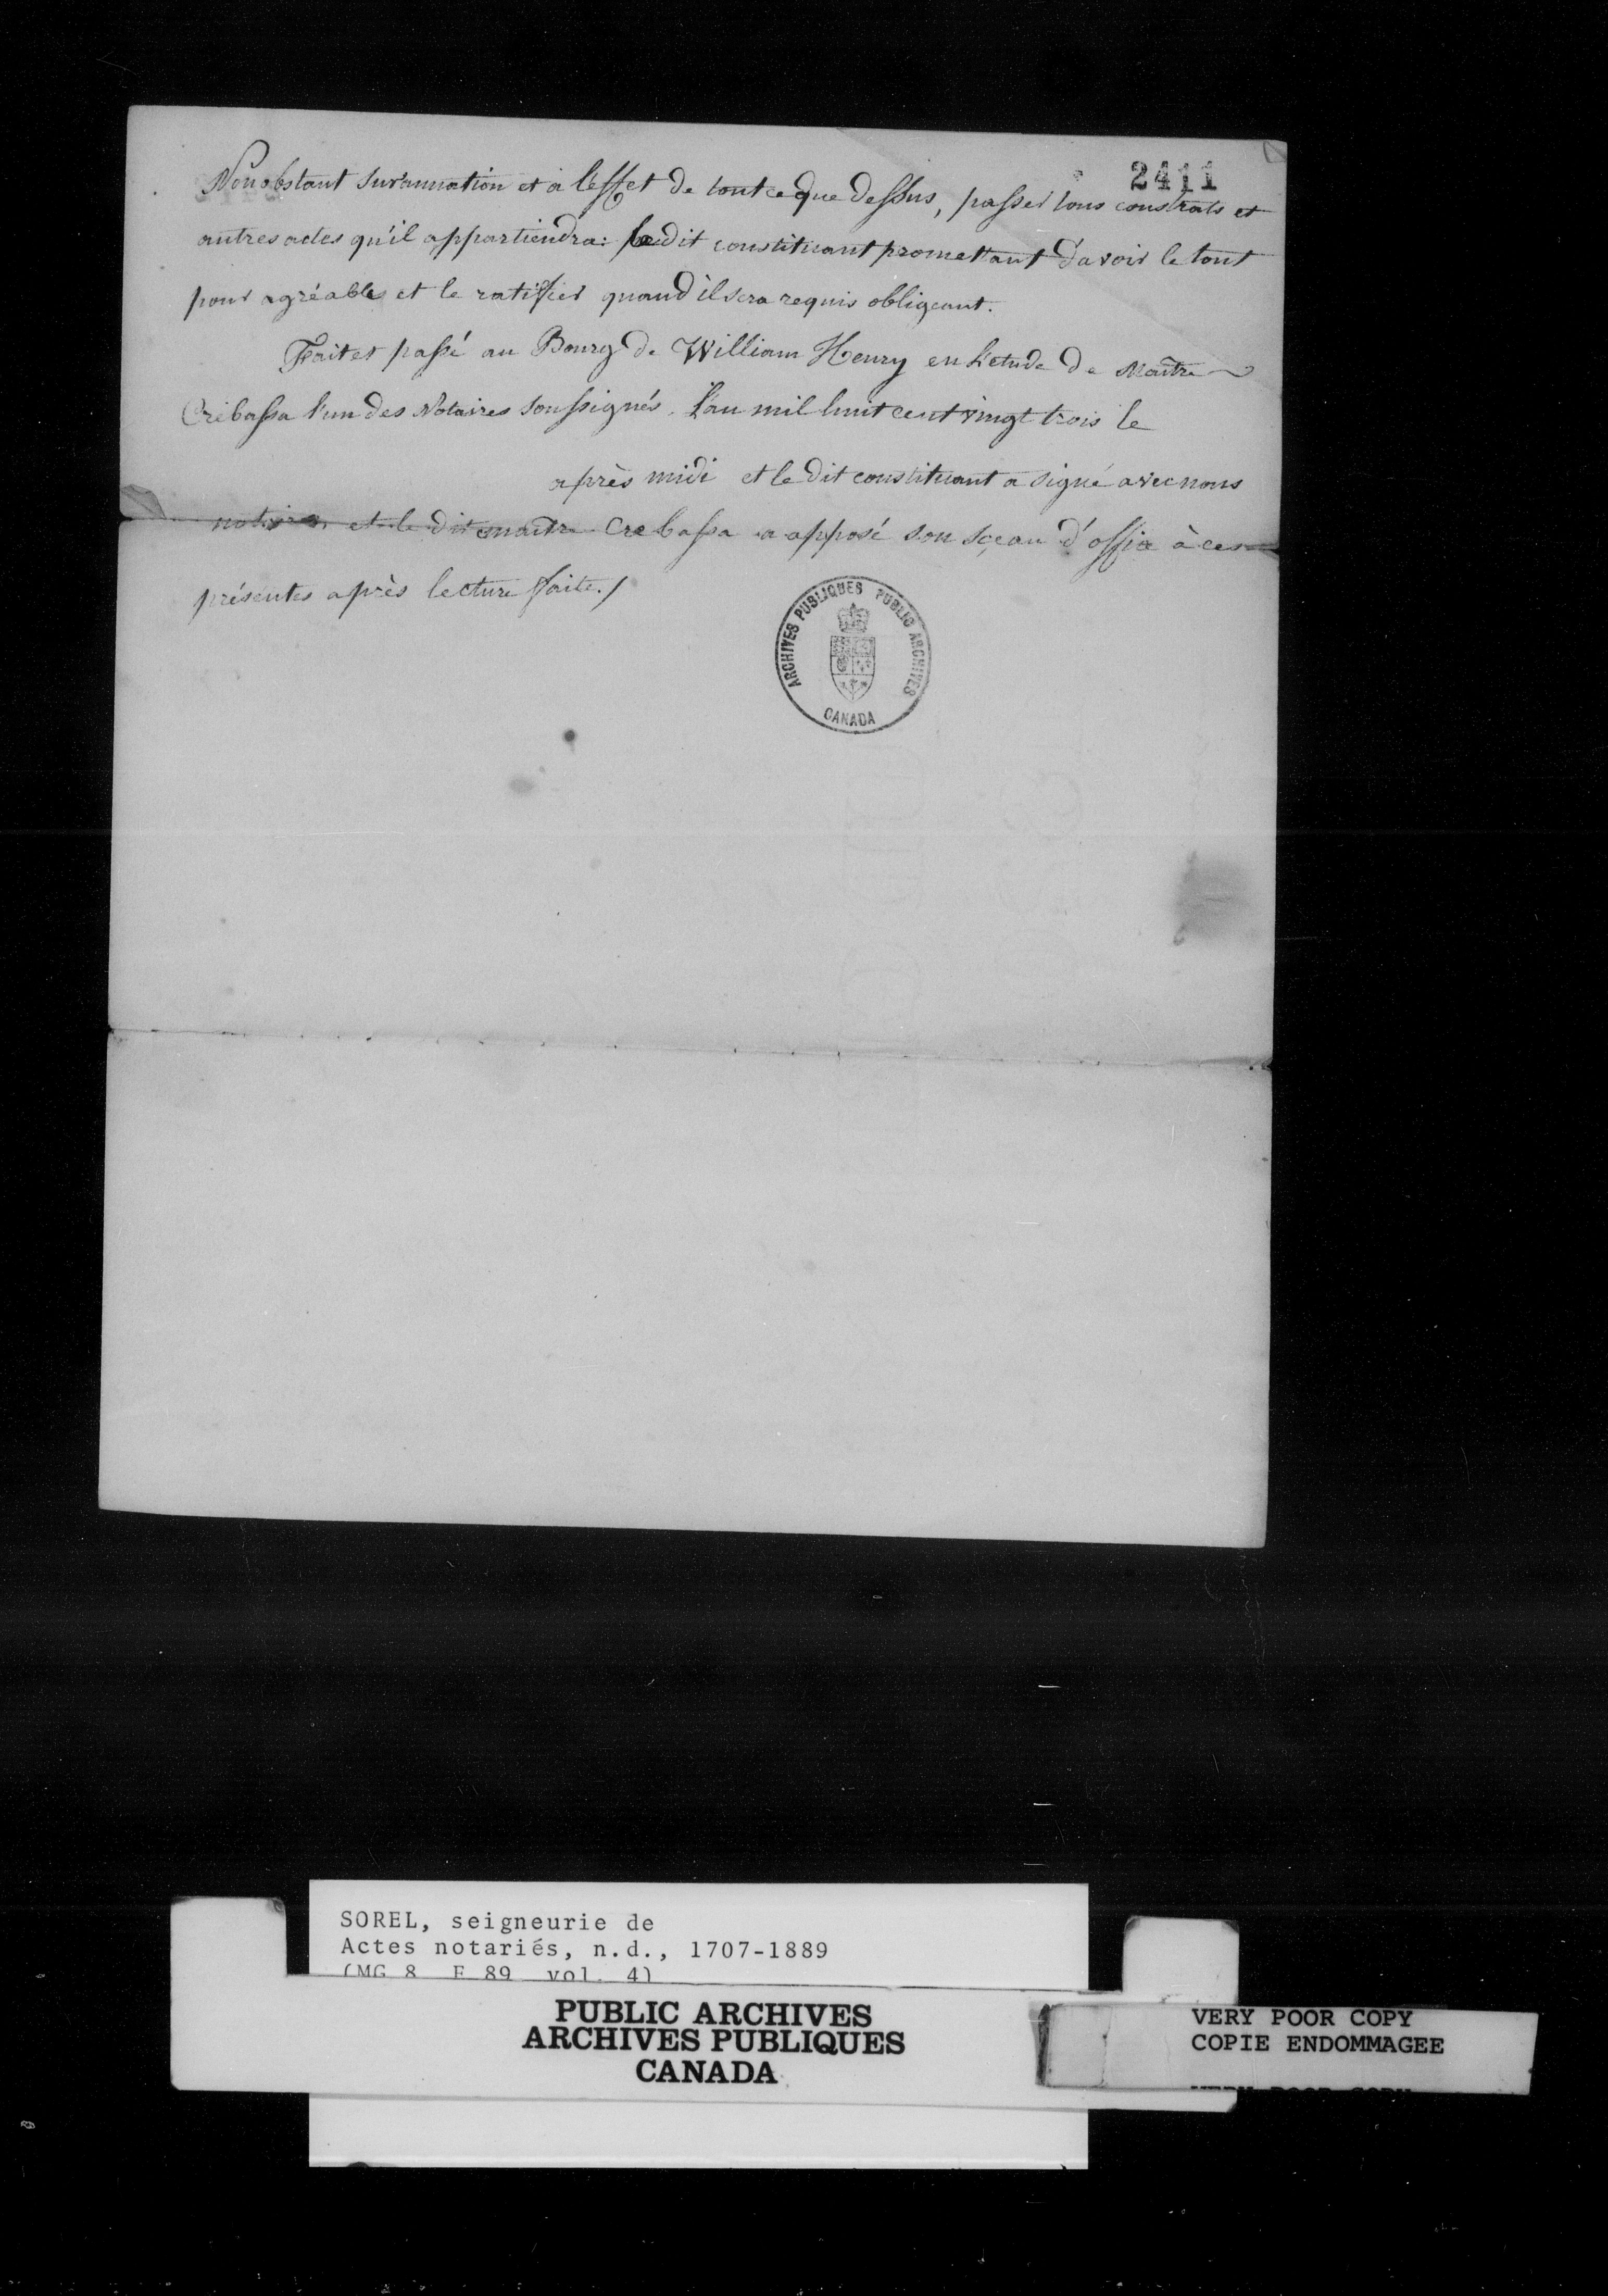 2411
Nonobstant surannation et à l'effet de tout ce que dessus, passer tous contrats et
autres actes qu'il appartiendra: ledit constituant promettant d'avoir le tout
pour agréable et le ratifier quand il sera requis obligeant.
Fait et passé au Bourg de William Henry en l'etude de Maitre
Crebassa l'un des Notaires soussignés. L'an mil huit cent vingt trois le
après midi et le dit constituant a signé avec nous
notaires et le dit maitre Crebassa a apposé son sçeau d'office à ces
présentes après lecture faite./
ARCHIVES PUBLIQUES PUBLIC ARCHIVES
CANADA
SOREL, seigneurie de
Actes notariés, n.d., 1707-1889
(MG 8 F 89 vol. 4)
PUBLIC ARCHIVES
ARCHIVES PUBLIQUES
CANADA
VERY POOR COPY
COPIE ENDOMMAGEE
VERY POOR COPY